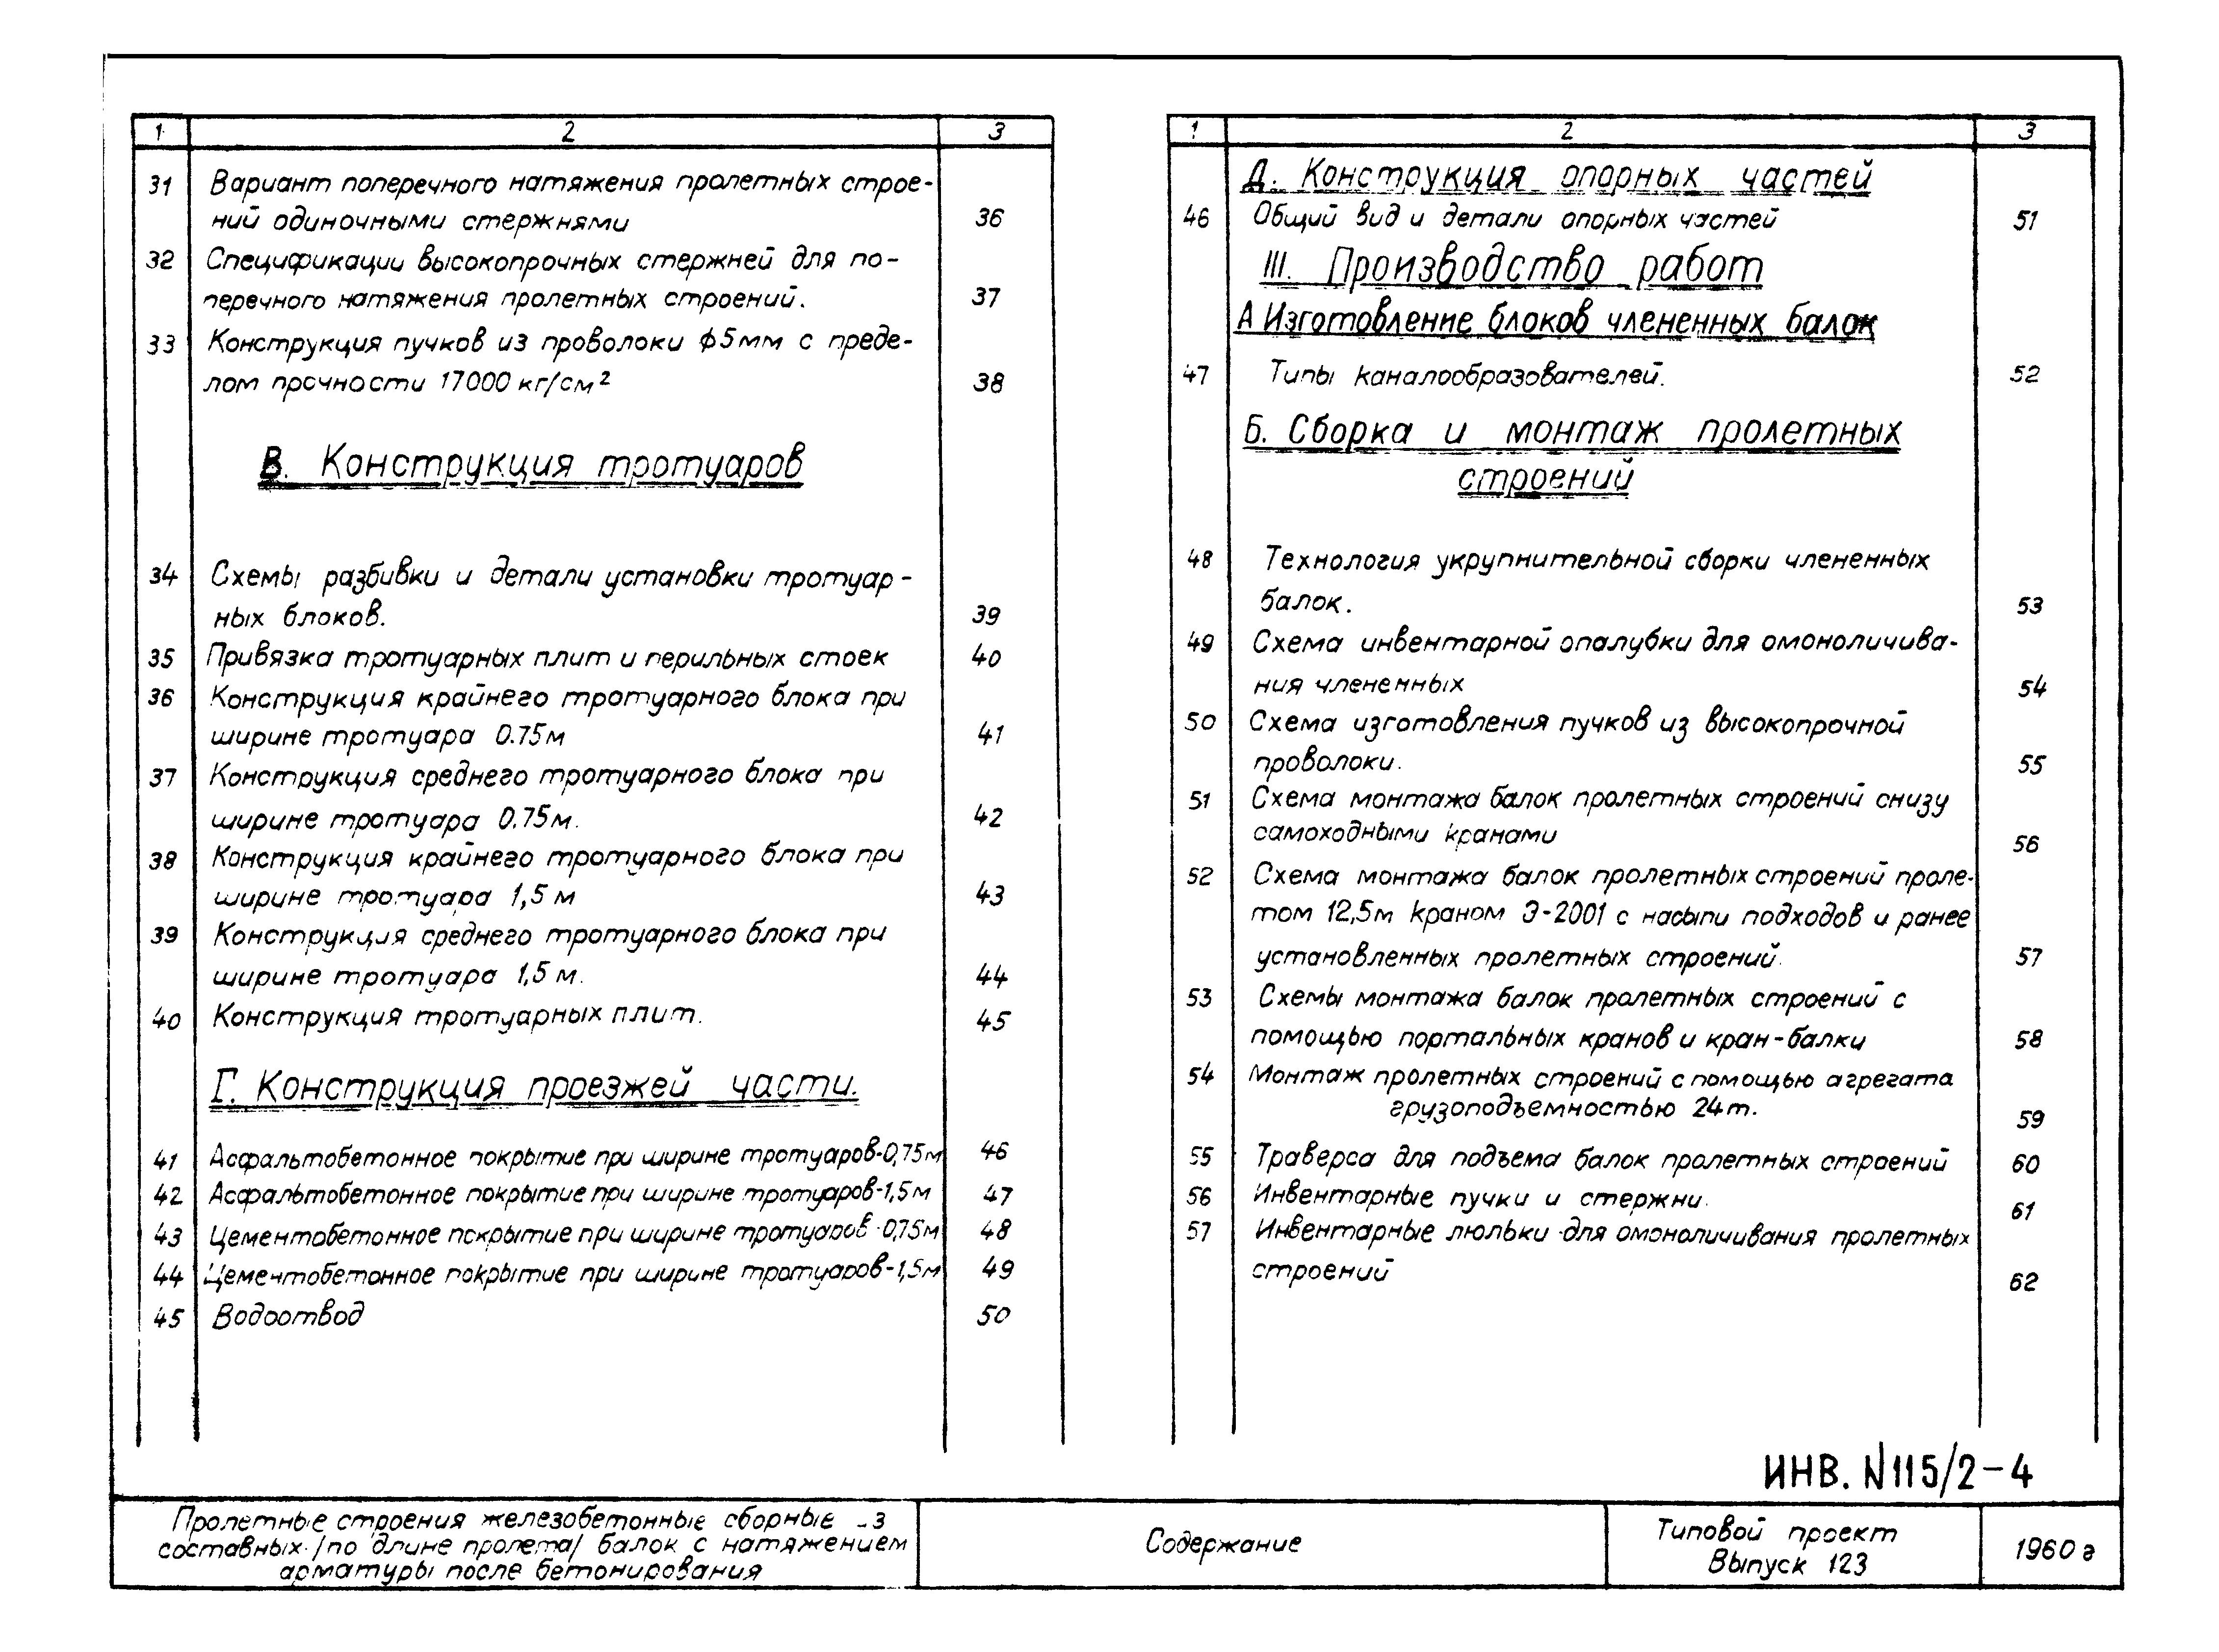 1 2 3
31 Вариант поперечного натяжения пролетных строе-
ний одиночными стержнями 36
32 Спецификации высокопрочных стержней для по-
перечного натяжения пролетных строений. 37
33 Конструкция пучков из проволоки ф5мм с преде-
лом прочности 17000 кг/см² 38
В. Конструкция тротуаров
34 Схемы разбивки и детали установки тротуар-
ных блоков. 39
35 Привязка тротуарных плит и перильных стоек 40
36 Конструкция крайнего тротуарного блока при
ширине тротуара 0.75м 41
37 Конструкция среднего тротуарного блока при
ширине тротуара 0.75м. 42
38 Конструкция крайнего тротуарного блока при
ширине тротуара 1,5 м 43
39 Конструкция среднего тротуарного блока при
ширине тротуара 1,5 м. 44
40 Конструкция тротуарных плит. 45
Г. Конструкция проезжей части.
41 Асфальтобетонное покрытие при ширине тротуаров-0,75м 46
42 Асфальтобетонное покрытие при ширине тротуаров-1,5м 47
43 Цементобетонное покрытие при ширине тротуаров-0,75м 48
44 Цементобетонное покрытие при ширине тротуаров-1,5м 49
45 Водоотвод 50
1 2 3
Д. Конструкция опорных частей
46 Общий вид и детали опорных частей 51
III. Производство работ
А Изготовление блоков члененных балок
47 Типы каналообразователей. 52
Б. Сборка и монтаж пролетных
строений
48 Технология укрупнительной сборки члененных
балок. 53
49 Схема инвентарной опалубки для омоноличива-
ния члененных 54
50 Схема изготовления пучков из высокопрочной
проволоки. 55
51 Схема монтажа балок пролетных строений снизу
самоходными кранами 56
52 Схема монтажа балок пролетных строений проле-
том 12,5м краном Э-2001 с насыпи подходов и ранее
установленных пролетных строений. 57
53 Схемы монтажа балок пролетных строений с
помощью портальных кранов и кран-балки 58
54 Монтаж пролетных строений с помощью агрегата
грузоподъемностью 24т. 59
55 Траверса для подъема балок пролетных строений 60
56 Инвентарные пучки и стержни. 61
57 Инвентарные люльки для омоноличивания пролетных
строений 62
ИНВ. N 115/2-4
Пролетные строения железобетонные сборные -з
составных /по длине пролета/ балок с натяжением
арматуры после бетонирования
Содержание
Типовой проект
Выпуск 123
1960 г